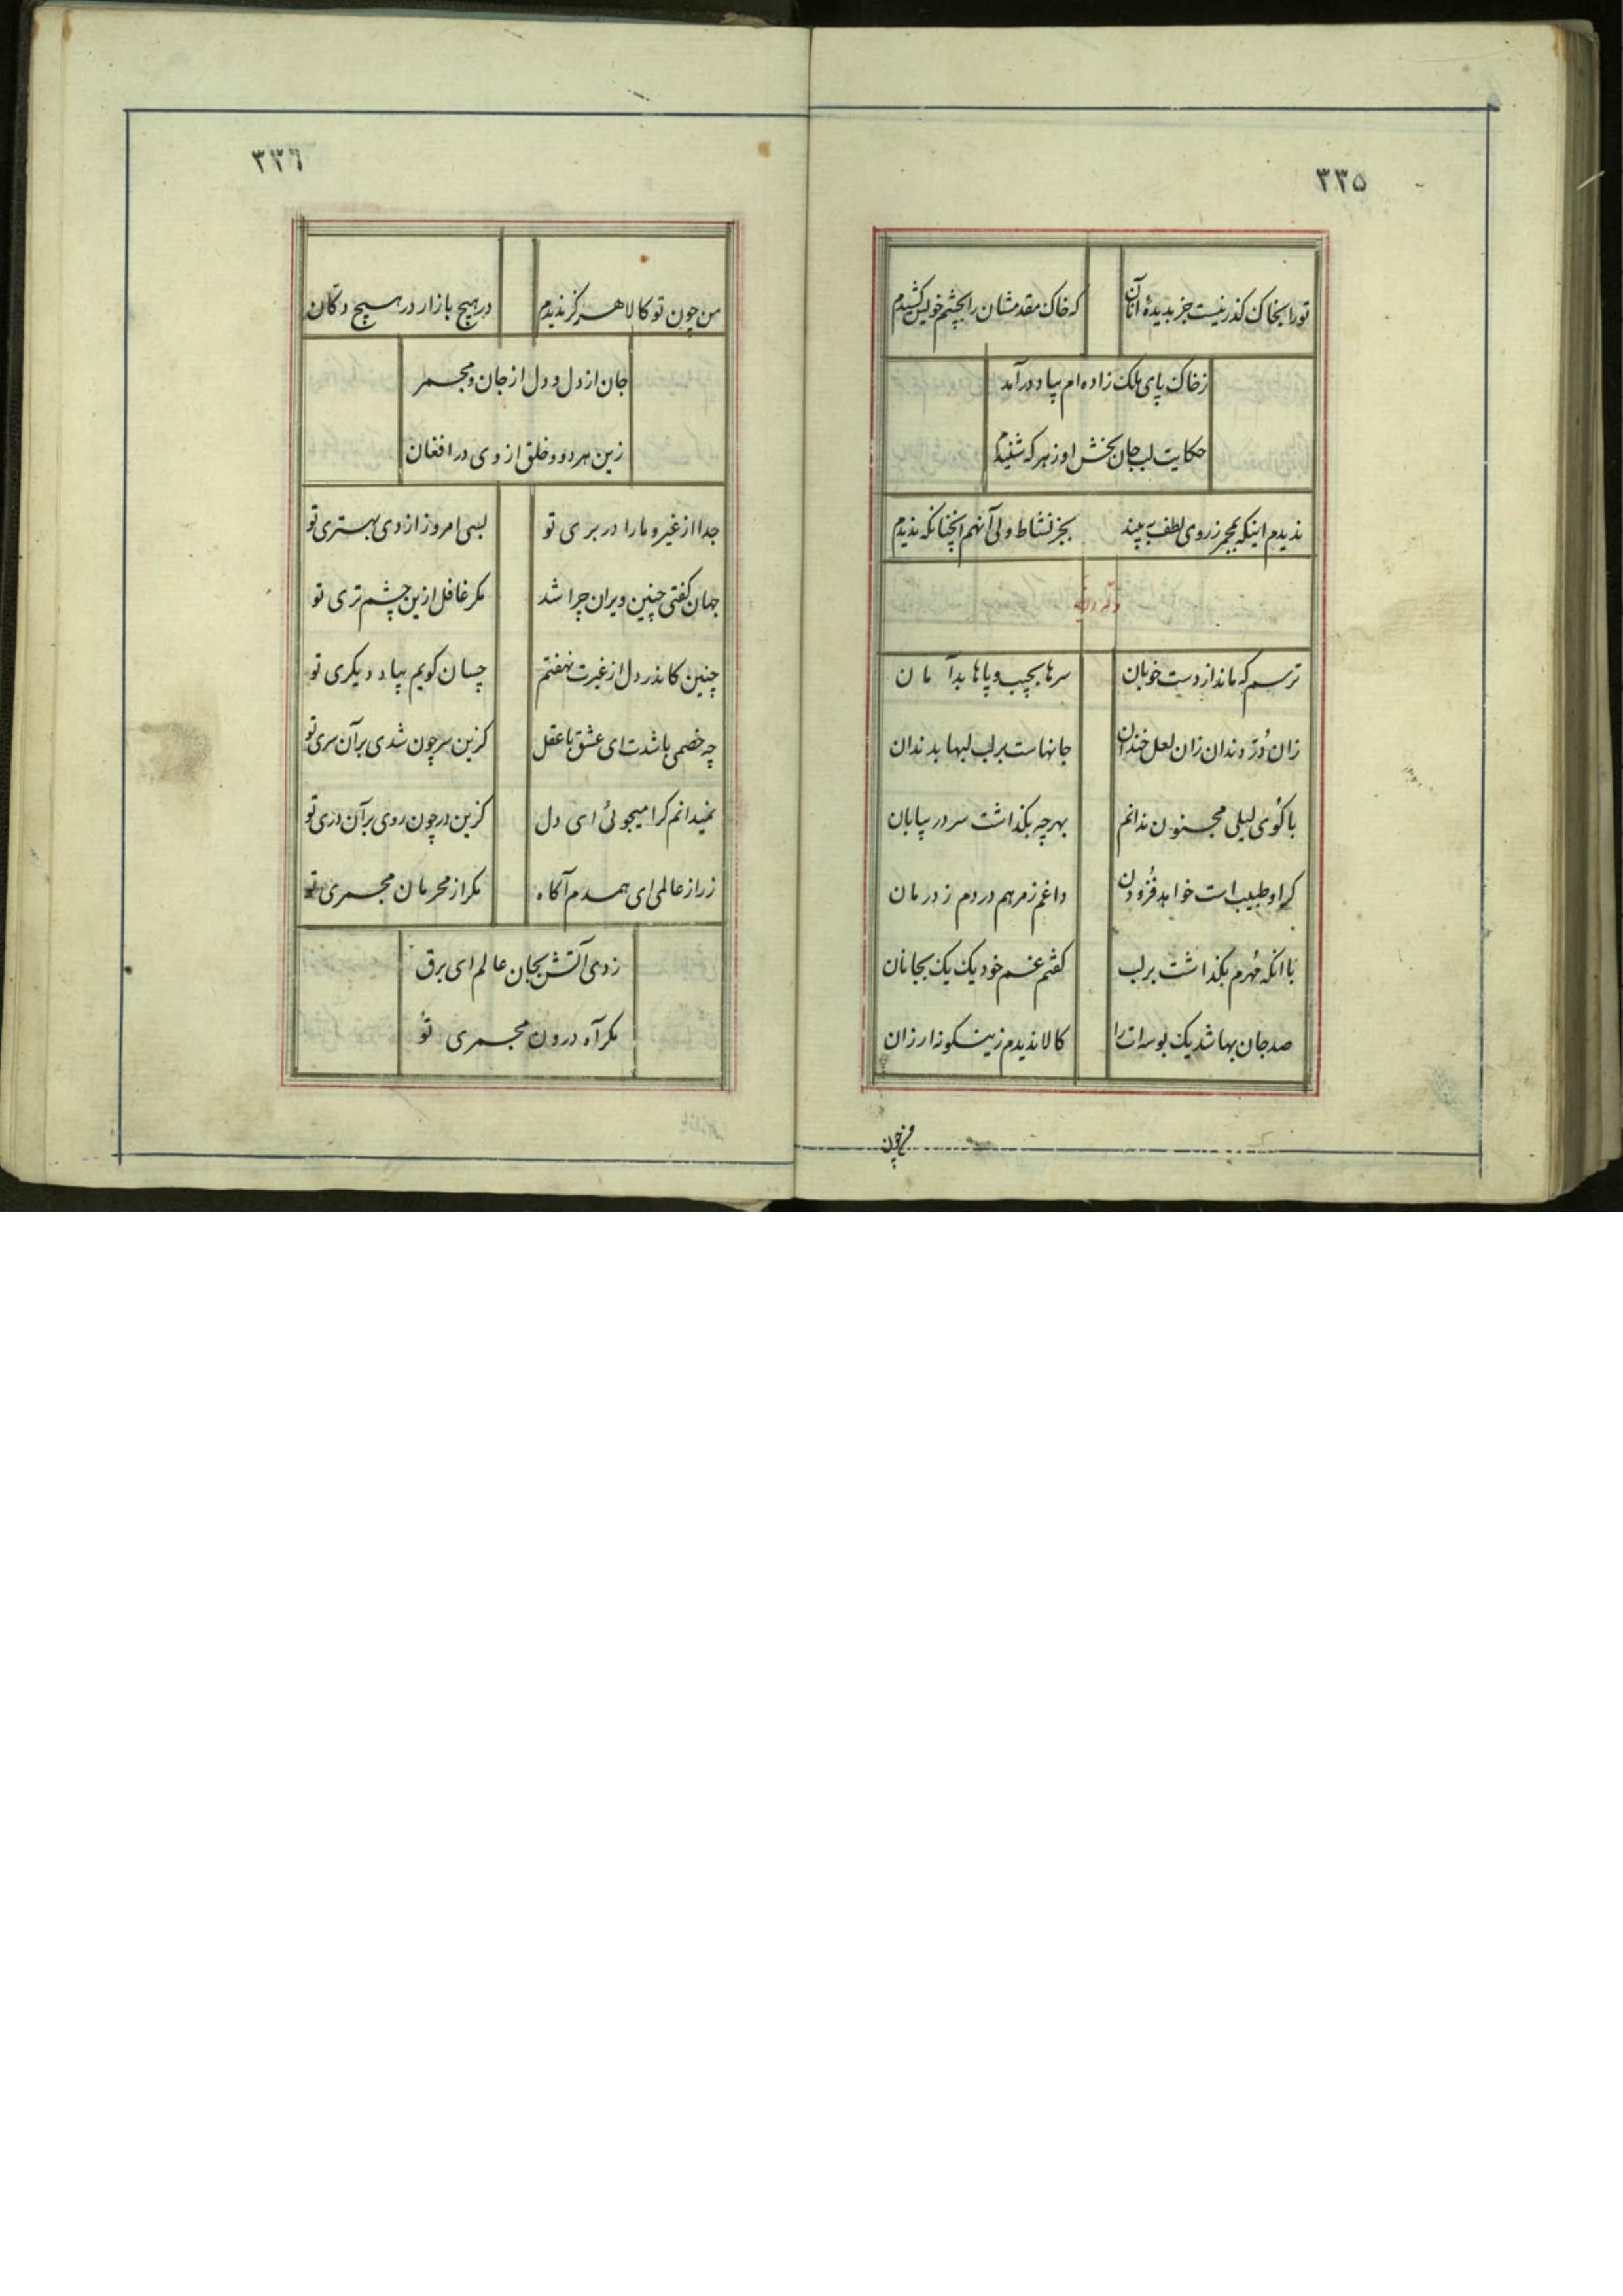 ۳۳۵
تورا بخاک گذر نیست جز بدیدهٔ آنان که خاک مقدمشان را بچشم خویش کشیدم
زخاک پای ملک زاده‌ام بیاد درآمد
حکایت لب جان بخش او زهر که شنیدم
ندیدم اینکه بمجمر ز روی لطف به بیند بجز نشاط ولی آنهم آنچنانکه ندیدم
ترسم که ماند از دست خوبان سرها بجیب و پاها بدامان
زان دُرّ دندان زان لعل خندان جانهاست بر لب لبها بدندان
با کُوی لیلی مجنون ندانم بهر چه بگذاشت سر در بیابان
گر او طبیب است خواهد فُزودن داغم ز مرهم دردم ز درمان
با انکه مُهرم بگذاشت بر لب گفتم غم خود یک یک بجانان
صد جان بها شد یک بوسه‌ات را کالا ندیدم زینگونه ارزان
من چون
۳۳۶
من چون تو کالا هرگز ندیدم در هیچ بازار در هیچ دکان
جان از دل و دل از جان و مجمر
زین هر دو و خلق از وی در افغان
جدا از غیر و ما را در بری تو بسی امروز از دی بهتری تو
جهان گفتی چنین ویران چرا شد مگر غافل ازین چشم تری تو
چنین کاندر دل از غیرت نهفتم چسان گویم بیاد دیگری تو
چه خصمی باشدت ای عشق با عقل کزین سر چون شدی بر آن سری تو
نمیدانم کرا میجوئی ای دل کزین در چون روی بر آن دری تو
ز راز عالمی ای همدم آگاه مگر از محرمان مجمری تو
زدی آتش بجان عالم ای برق
مگر آه درون مجمری تُو